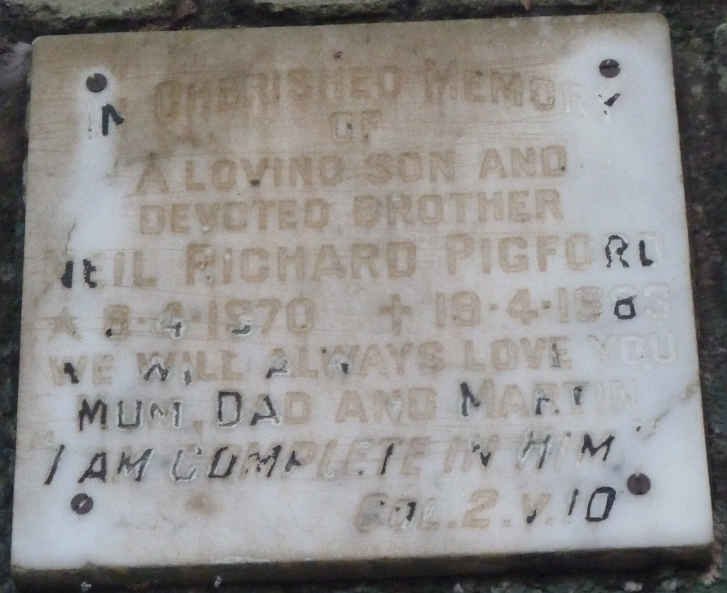 IN CHERISHED MEMORY
OF
A LOVING SON AND
DEVOTED BROTHER
NEIL RICHARD PIGFORD
★ 8·4·1970 + 19·4·1988
WE WILL ALWAYS LOVE YOU
MUM, DAD AND MARTIN
"I AM COMPLETE IN HIM"
COL.2.V.10